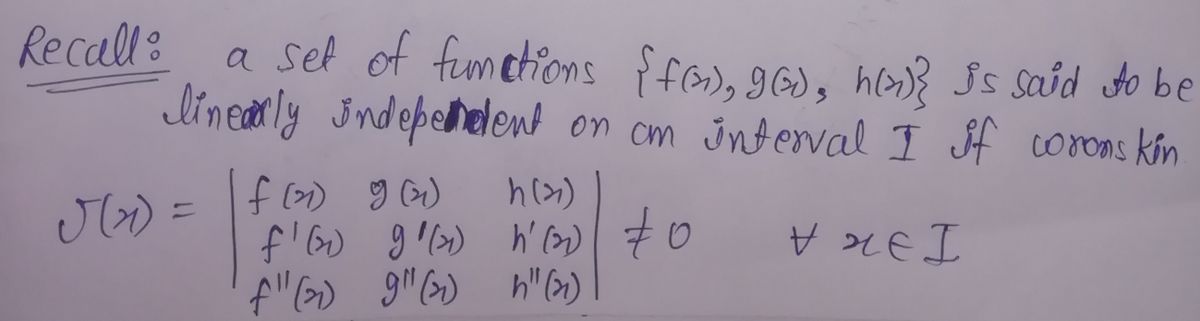 Recall: a set of functions {f(x), g(x), h(x)} is said to be
linearly independent on an interval I if coronskin
J(x) = | f(x) g(x) h(x) |
| f'(x) g'(x) h'(x) | ≠ 0 ∀ x ∈ I
| f"(x) g"(x) h"(x) |